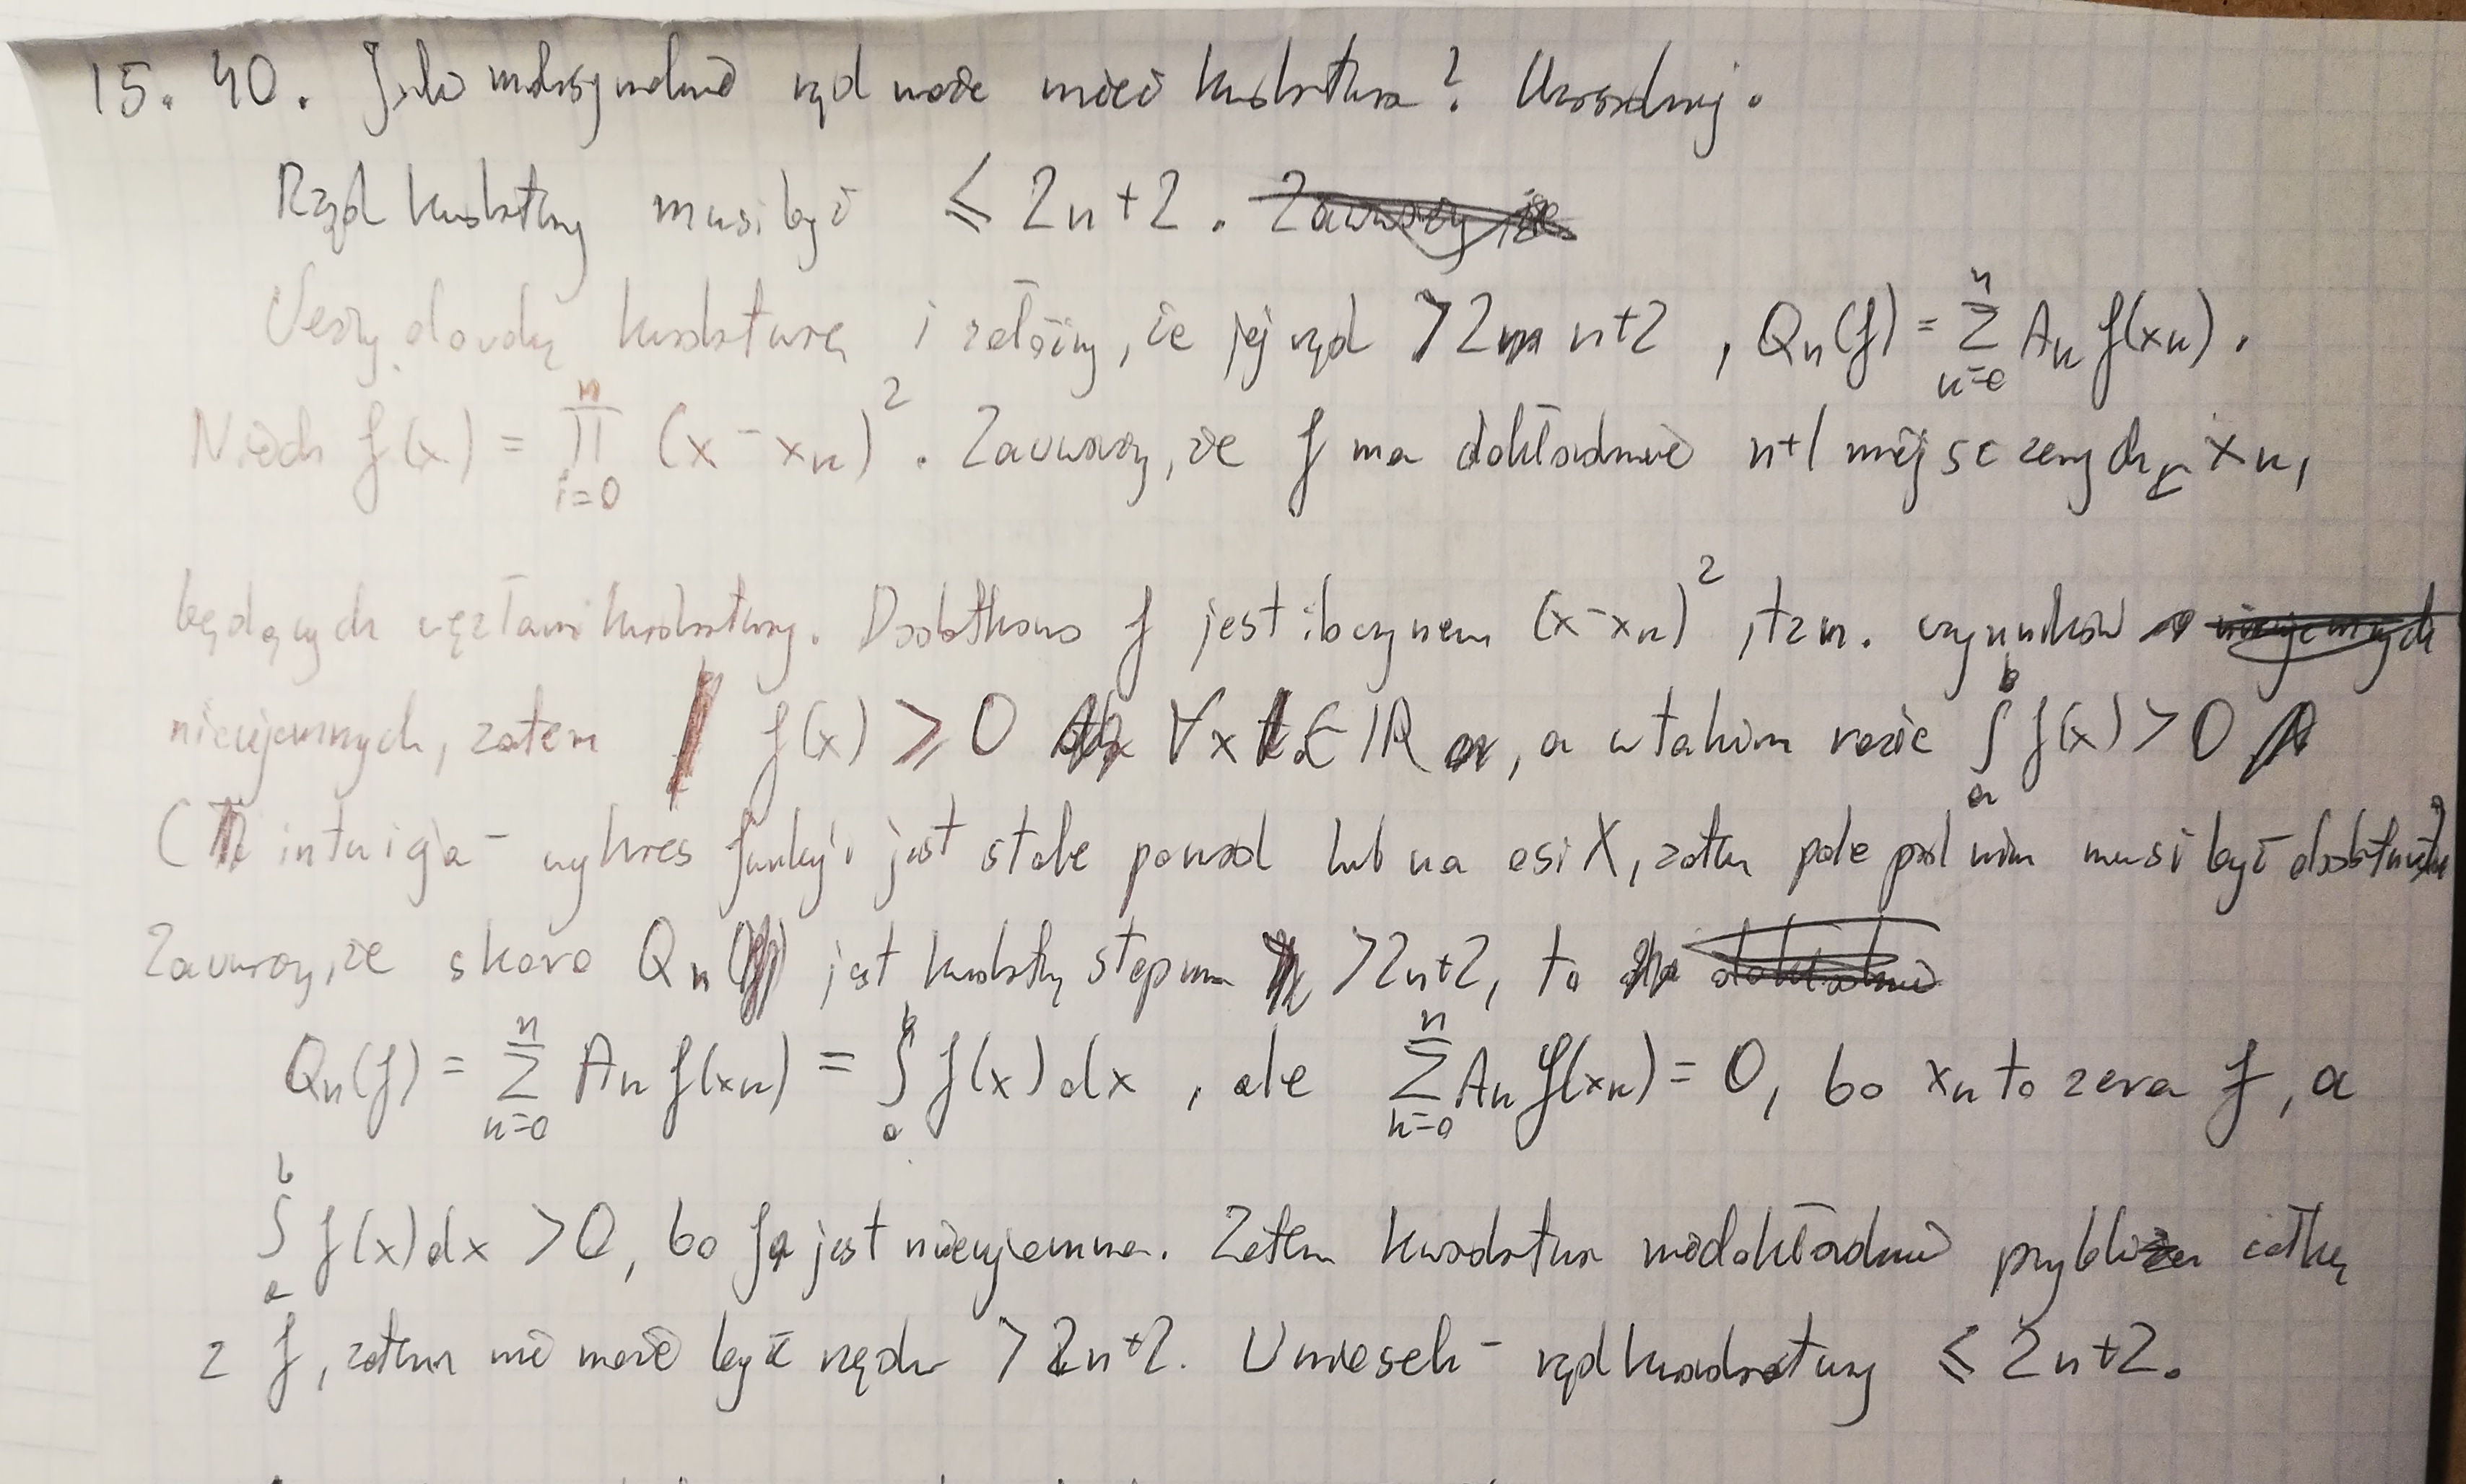 15.40. Jaki maksymalnie rząd może mieć kwadratura? Uzasadnij.
Rząd kwadratury musi być ≤ 2n+2. Zauważmy, że
Weźmy dowolną kwadraturę i załóżmy, że jej rząd > 2n+2, Qn(f) = n Σ k=0 Ak f(xk).
Niech f(x) = n Π i=0 (x - xk)². Zauważmy, że f ma dokładnie n+1 miejsc zerowych xk,
będących węzłami kwadratury. Dodatkowo f jest iloczynem (x-xk)², tzn. czynników nieujemnych
nieujemnych, zatem f(x) ≥ 0 ∀x ∈ ℝ, a w takim razie b ∫ a f(x) > 0
(intuicja - wykres funkcji jest stale ponad lub na osi X, zatem pole pod nim musi być dodatnie)
Zauważmy, że skoro Qn jest kwadraturą stopnia > 2n+2, to dokładnie
Qn(f) = n Σ k=0 Ak f(xk) = b ∫ a f(x)dx, ale n Σ k=0 Ak f(xk) = 0, bo xk to zera f, a
b ∫ a f(x)dx > 0, bo f jest nieujemna. Zatem kwadratura niedokładnie przybliża całkę
z f, zatem nie może być rzędu > 2n+2. Wniosek - rząd kwadratury ≤ 2n+2.